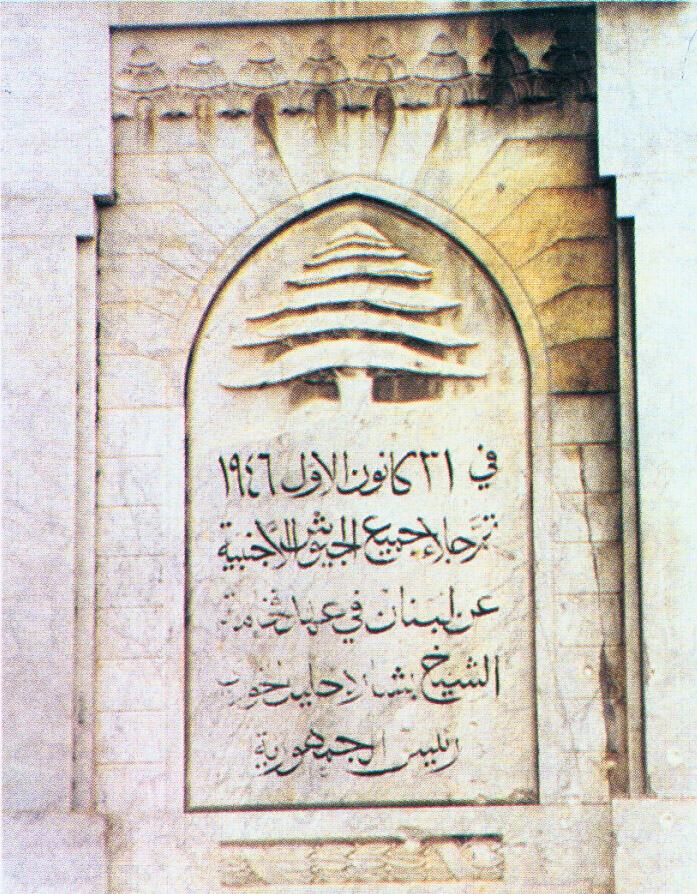 في ٣١ كانون الاول ١٩٤٦
تمَّ جلاء جميع الجيوش الاجنبية
عن لبنان في عهد فخامة
الشيخ بشارة خليل الخوري
رئيس الجمهورية